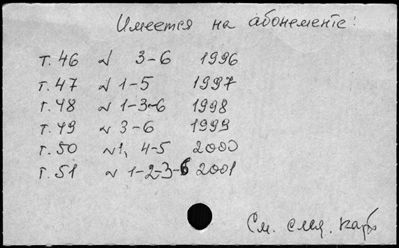 Имеется на абонементе:
т. 46 № 3-6 1996
т. 47 № 1-5 1997
т. 48 № 1-3-6 1998
т. 49 № 3-6 1999
т. 50 № 1, 4-5 2000
т. 51 № 1-2-3-6 2001
См. след. карт